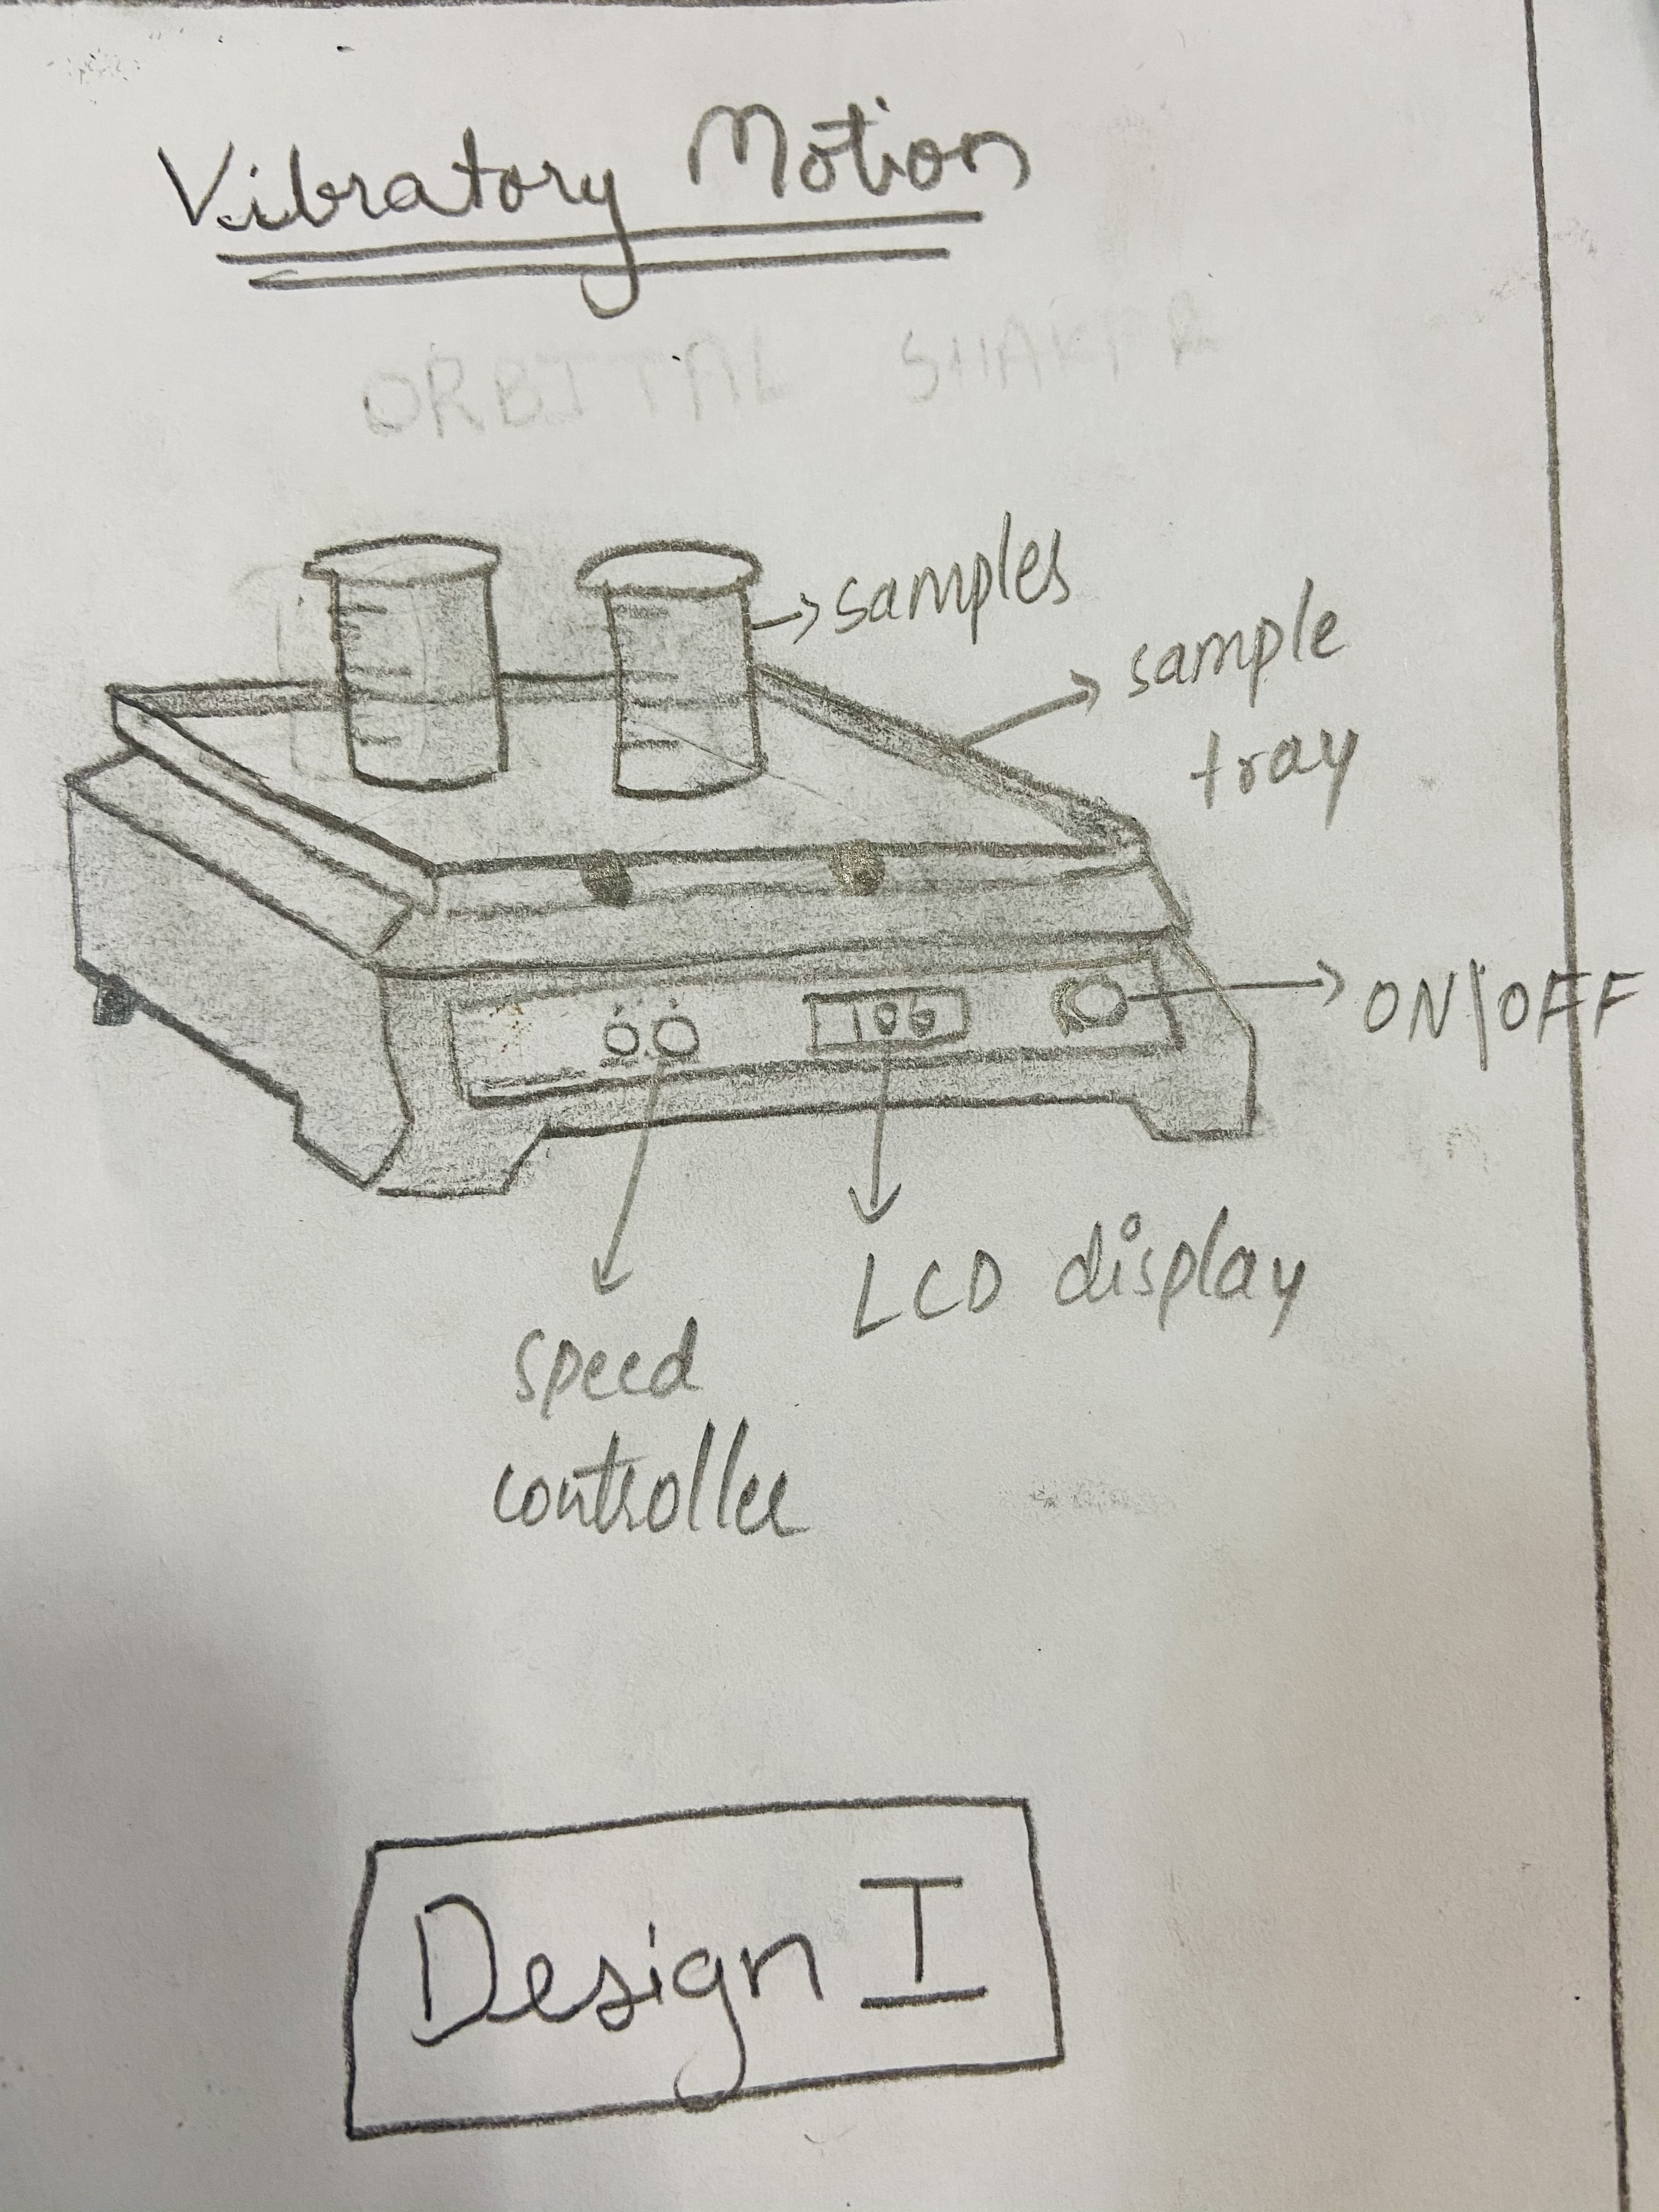 Vibratory Motion
ORBITAL SHAKER
samples
sample
tray
ON/OFF
100
LCD display
speed
controller
Design I